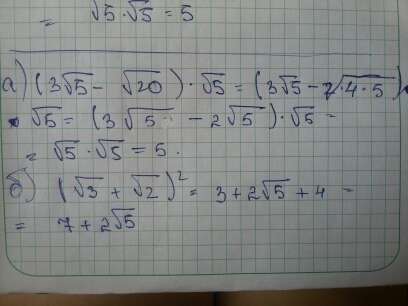 = √5 · √5 = 5
а) (3√5 − √20) · √5 = (3√5 − √4·5) ·
· √5 = (3√5 − 2√5) · √5 =
= √5 · √5 = 5.
б) (√3 + √2)² = 3 + 2√5 + 4 =
= 7 + 2√5